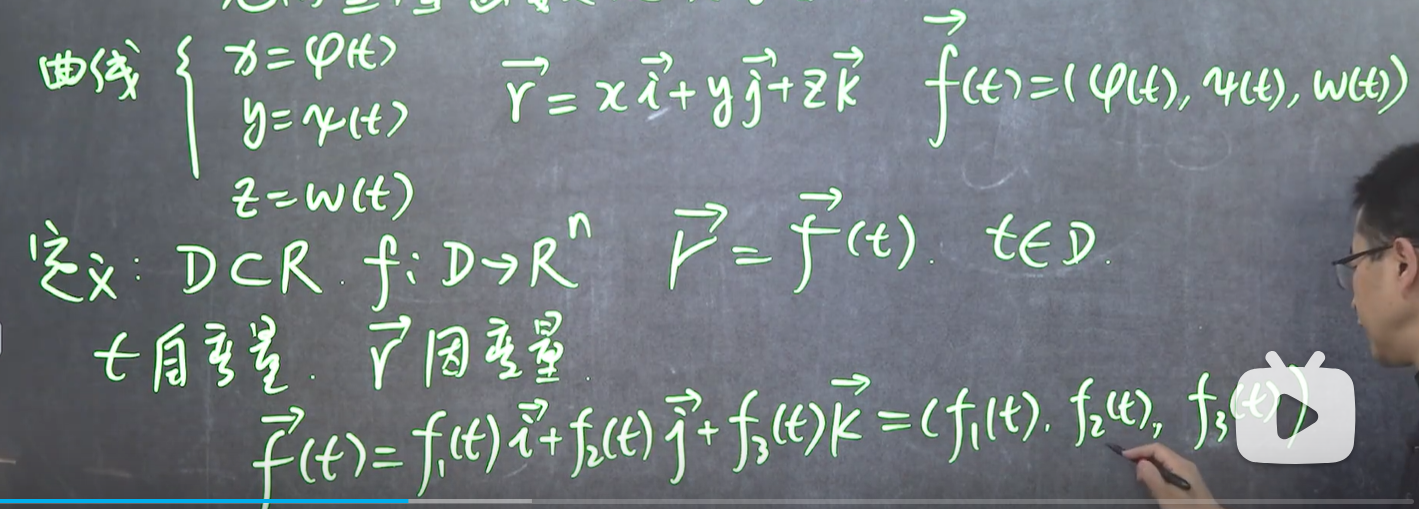 曲线 { x=φ(t) r⃗=xi⃗+yj⃗+zk⃗ f⃗(t)=(φ(t), ψ(t), w(t))
y=ψ(t)
z=w(t)
定义: D⊂R. f: D→Rⁿ r⃗=f⃗(t). t∈D.
t自变量. r⃗因变量.
f⃗(t)=f₁(t)i⃗+f₂(t)j⃗+f₃(t)k⃗=(f₁(t), f₂(t), f₃(t))